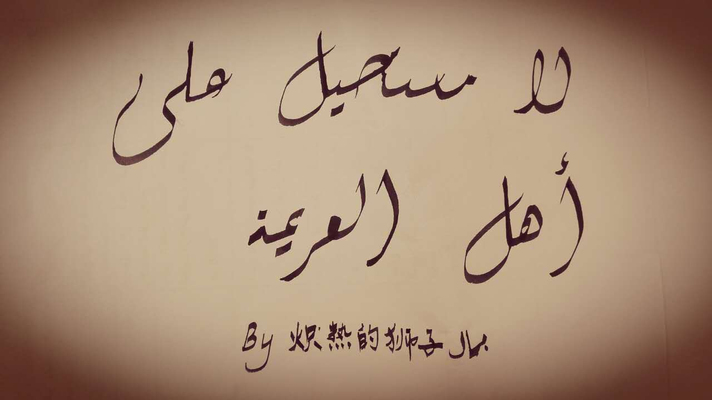 لا مستحيل على
أهل العزيمة
By 炽热的狮子 جمال